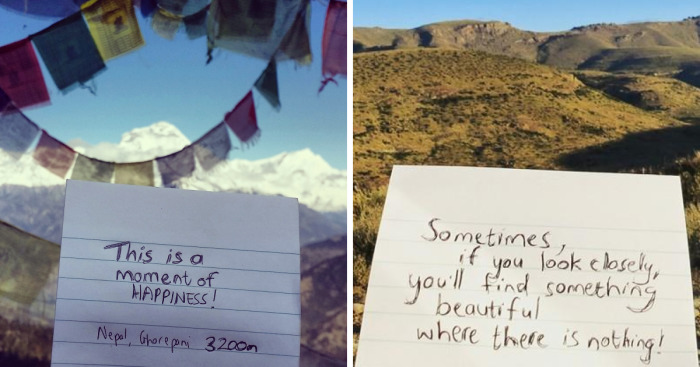 This is a
moment of
HAPPINESS!
Nepal, Ghorepani 3200m
Sometimes,
if you look closely,
you'll find something
beautiful
where there is nothing!